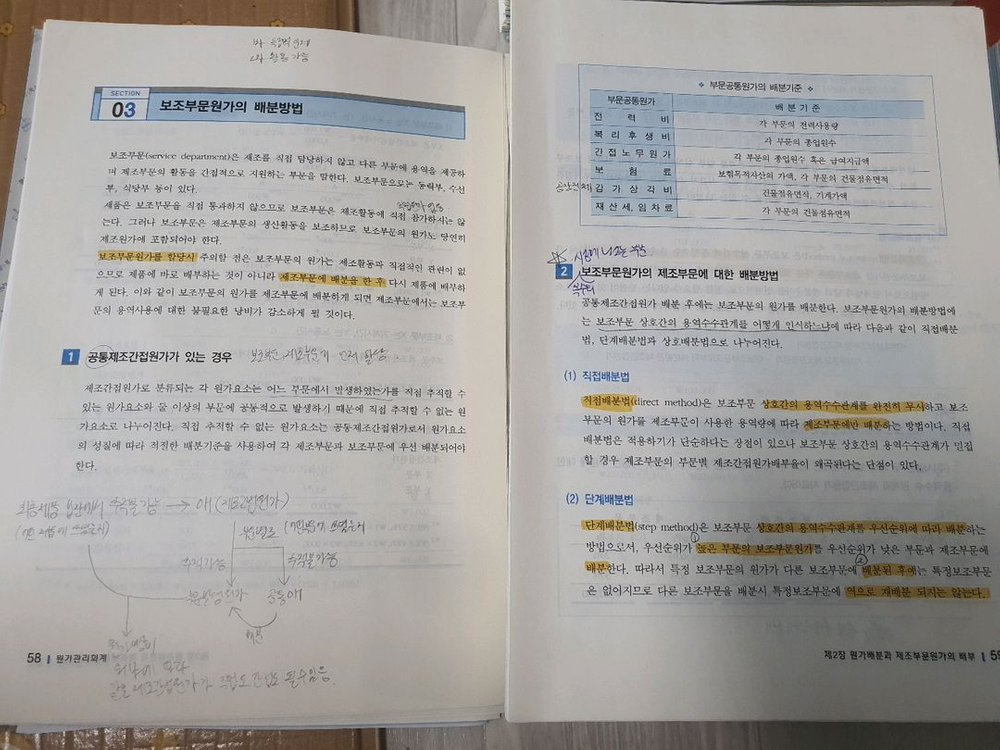 SECTION
03
보조부문원가의 배분방법
보조부문(service department)은 제조를 직접 담당하지 않고 다른 부문에 용역을 제공하
며 제조부문의 활동을 간접적으로 지원하는 부문을 말한다. 보조부문으로는 동력부, 수선
부, 식당부 등이 있다.
제품은 보조부문을 직접 통과하지 않으므로 보조부문은 제조활동에 직접 참가하지는 않
는다. 그러나 보조부문은 제조부문의 생산활동을 보조하므로 보조부문의 원가도 당연히
제조원가에 포함되어야 한다.
보조부문원가를 할당시 주의할 점은 보조부문의 원가는 제조활동과 직접적인 관련이 없
으므로 제품에 바로 배부하는 것이 아니라 제조부문에 배분을 한 후 다시 제품에 배부하
게 된다. 이와 같이 보조부문의 원가를 제조부문에 배분하게 되면 제조부문에서는 보조부
문의 용역사용에 대한 불필요한 낭비가 감소하게 될 것이다.
1 공통제조간접원가가 있는 경우
제조간접원가로 분류되는 각 원가요소는 어느 부문에서 발생하였는가를 직접 추적할 수
있는 원가요소와 둘 이상의 부문에 공통적으로 발생하기 때문에 직접 추적할 수 없는 원
가요소로 나누어진다. 직접 추적할 수 없는 원가요소는 공통제조간접원가로서 원가요소
의 성질에 따라 적절한 배분기준을 사용하여 각 제조부문과 보조부문에 우선 배분되어야
한다.
추적가능
추적불가능
58 원가관리회계
❖ 부문공통원가의 배분기준 ❖
부문공통원가 배 분 기 준
전 력 비 각 부문의 전력사용량
복 리 후 생 비 각 부문의 종업원수
간 접 노 무 원 가 각 부문의 종업원수 혹은 급여지급액
보 험 료 보험목적자산의 가액, 각 부문의 건물점유면적
감 가 상 각 비 건물점유면적, 기계가액
재 산 세, 임 차 료 각 부문의 건물점유면적
시험에 나오는 부분
2 보조부문원가의 제조부문에 대한 배분방법
공통제조간접원가 배분 후에는 보조부문의 원가를 배분한다. 보조부문원가의 배분방법에
는 보조부문 상호간의 용역수수관계를 어떻게 인식하느냐에 따라 다음과 같이 직접배분
법, 단계배분법과 상호배분법으로 나누어진다.
(1) 직접배분법
직접배분법(direct method)은 보조부문 상호간의 용역수수관계를 완전히 무시하고 보조
부문의 원가를 제조부문이 사용한 용역량에 따라 제조부문에만 배분하는 방법이다. 직접
배분법은 적용하기가 단순하다는 장점이 있으나 보조부문 상호간의 용역수수관계가 밀접
할 경우 제조부문의 부문별 제조간접원가배부율이 왜곡된다는 단점이 있다.
(2) 단계배분법
단계배분법(step method)은 보조부문 상호간의 용역수수관계를 우선순위에 따라 배분하는
방법으로서, 우선순위가 ① 높은 부문의 보조부문원가를 우선순위가 낮은 부문과 제조부문에
배분한다. 따라서 특정 보조부문의 원가가 다른 보조부문에 ② 배분된 후에는 특정보조부문
은 없어지므로 다른 보조부문을 배분시 특정보조부문에 역으로 재배분 되지는 않는다.
제2장 원가배분과 제조부문원가의 배부 59